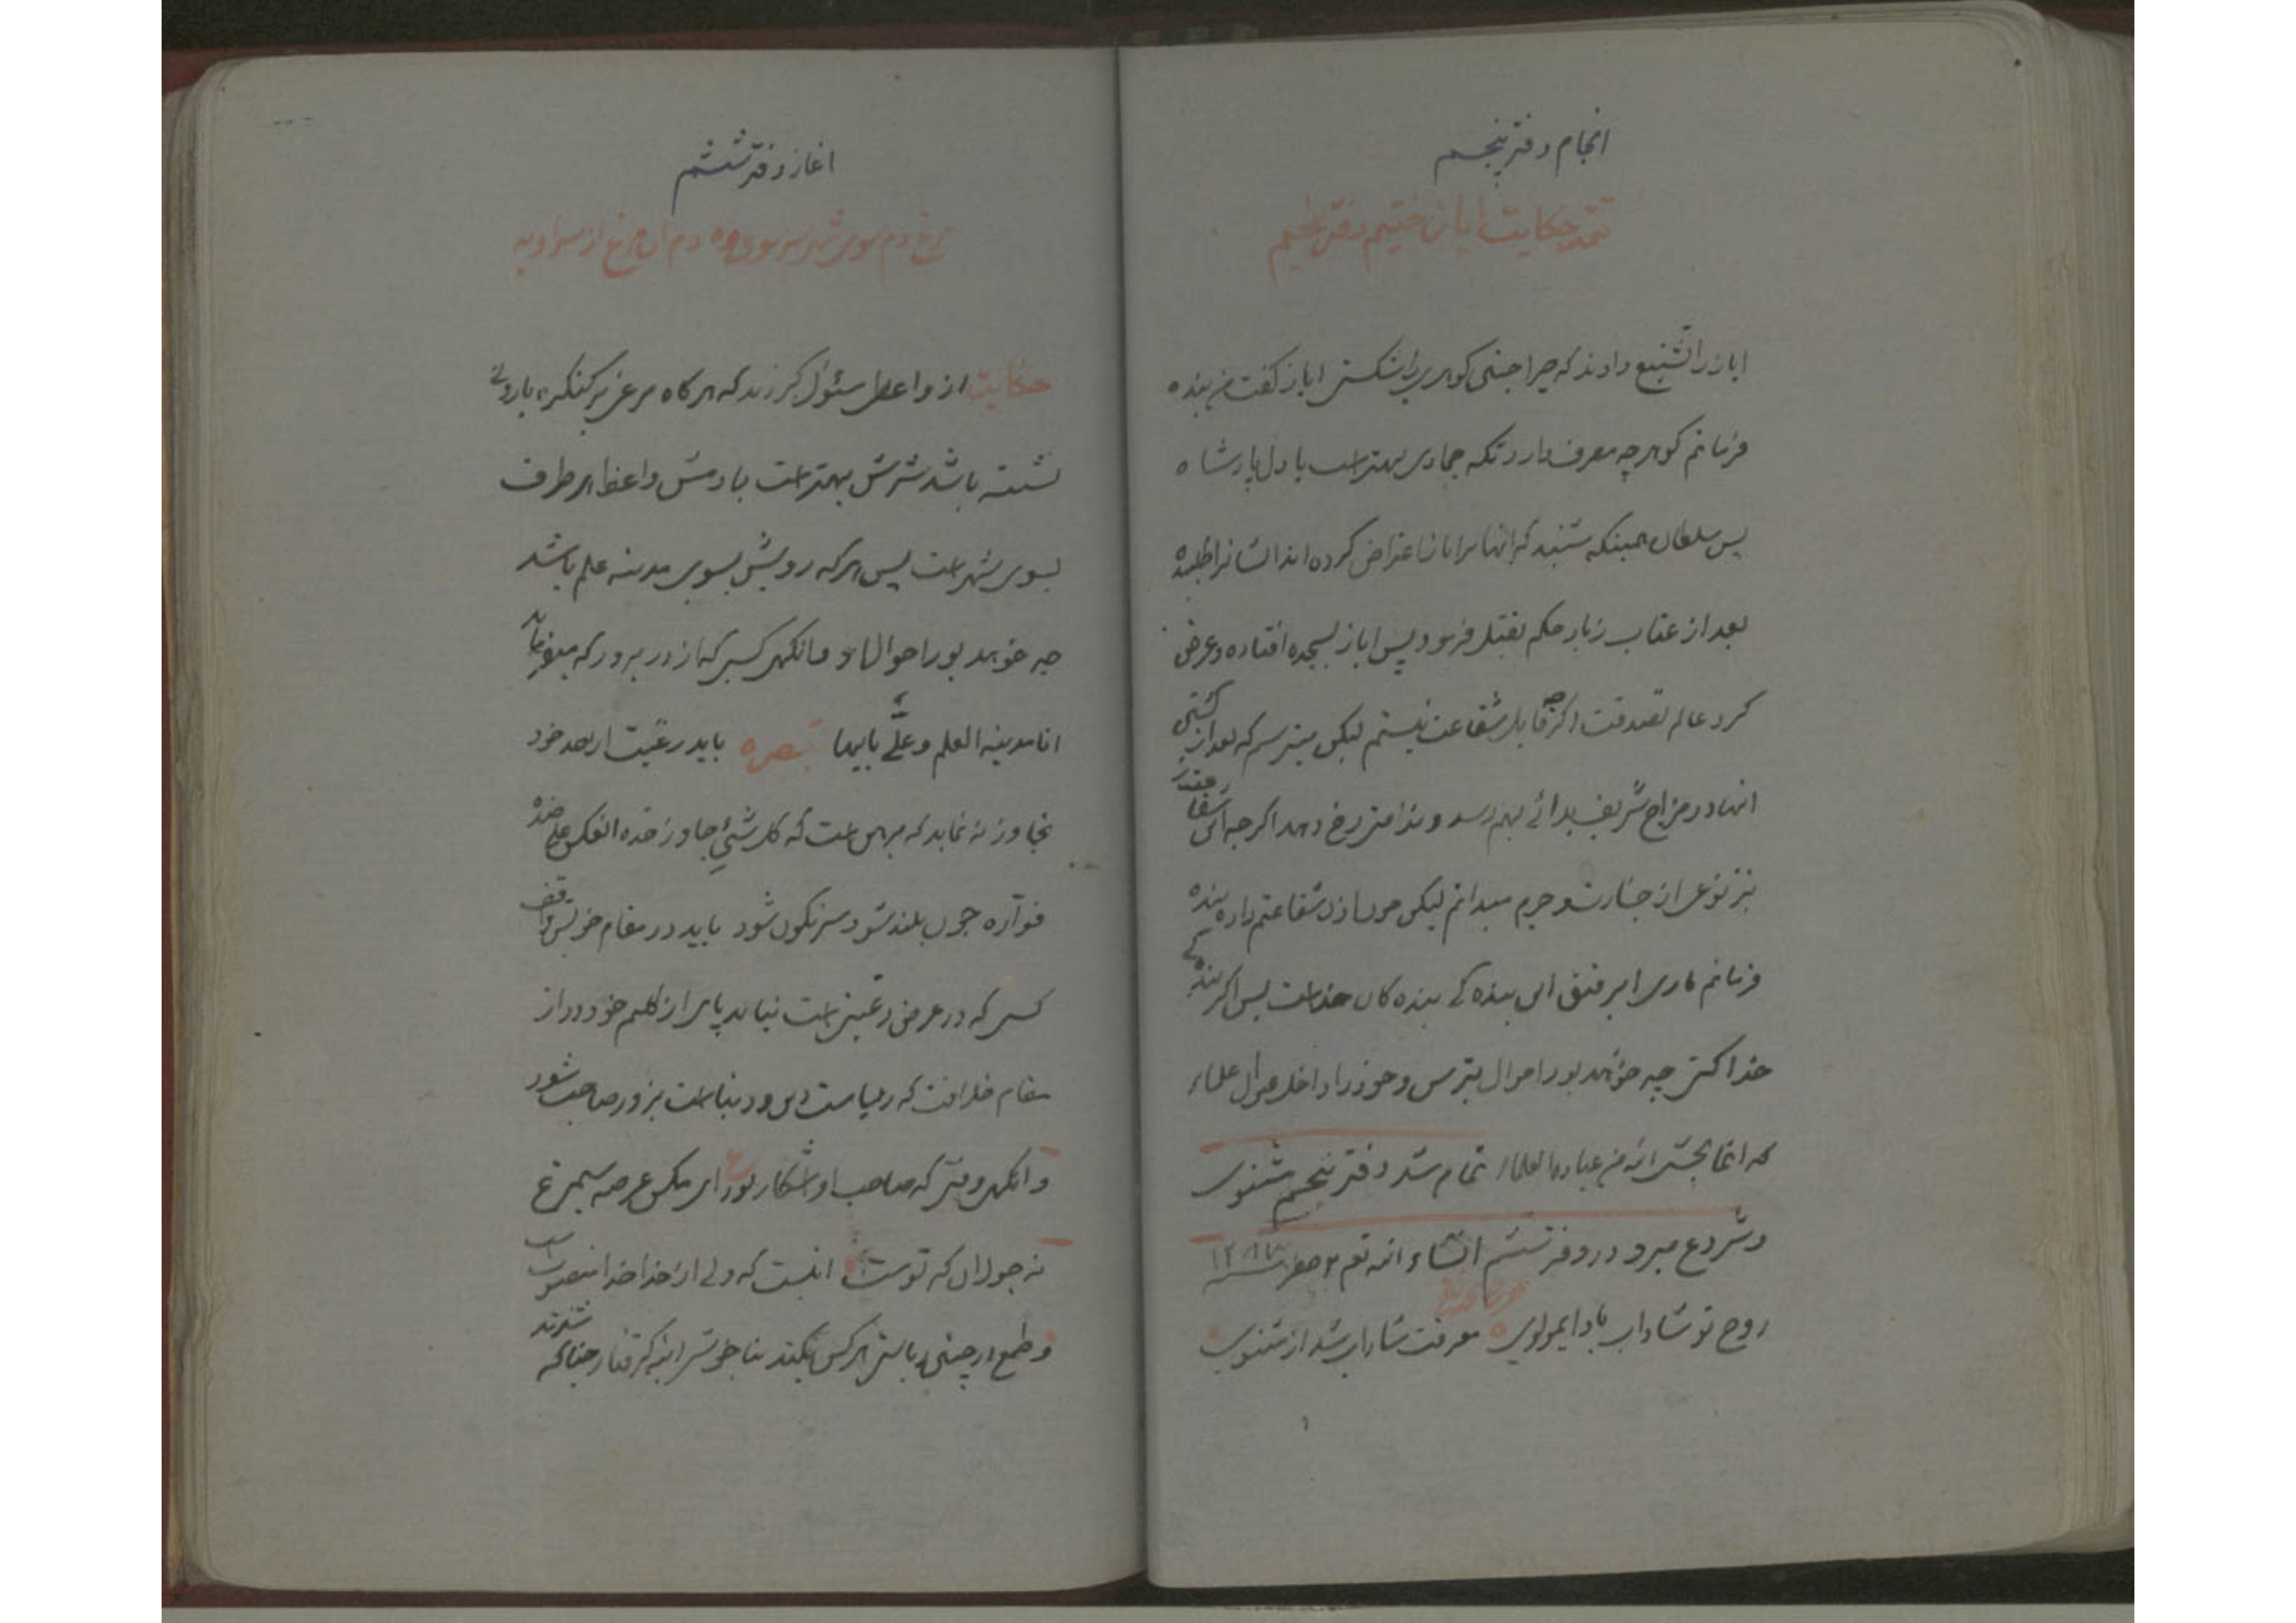 انجام دفتر پنجم
تتمه حکایت ایاز ختم دفتر پنجم
ایاز را تشنیع دادند که چرا چنین گوهری را شکستی ایاز گفت من بنده
فرمانم گوهر چه مصرف دارد تکه جمادی بهتر است یا دل پادشاه
پس سلطان همینکه شنید که انها بر ایاز اعتراض کرده اند ایشانرا طلبیده
بعد از عتاب زیاد حکم بقتل فرمود پس ایاز بسجده افتاده و عرض
کرد عالم تصدقت اگرچه قابل شفاعت نیستم لیکن میترسم که بعد از کشتن
انها در مزاج شریف بهم رسد و ندامتی رخ دهد اگرچه این شفاعت
نیز نوعی از جسارت و جرم میدانم لیکن چون اذن شفاعتم داده بنده
فرمانم باری ای رفیق این بنده که بنده کان خداست پس اگر بنده
خدا کسی چه خواهد بود احوال بترس و خود را داخل علماء
که انما یخشی الله من عباده العلماء تمام شد دفتر پنجم مثنوی
و شروع میرود در دفتر ششم انشاء الله تعم صفر
روح تو شاداب باد ای مولوی معرفت شاداب شد از مثنوی
اغاز دفتر ششم
مرغ دم سوی شهر سر سوی ده دم ان مرغ از سر او به
حکایت از واعظی سئوال کردند که هر گاه مرغی بر کنگره باروئی
نشسته باشد سرش بهتر است یا دمش واعظ هر طرف
بسوی شهر است پس هر که رویش بسوی مدینه علم باشد
چه خوهد بود احوال او وانگهی کسی که از در برود که میفرماید
انا مدینه العلم و علّی بابها تبصره باید رعیت از حد خود
تجاوز نه نماید که مبرهن است که کل شیئی جاوز حده انعکس علی ضده
فوّاره چون بلند شود سرنگون شود باید در مقام خویش واقف
کسی که در عرض رعیتی است نباید پای از گلیم خود دراز
مقام خلافت که ریاست دین و دنیاست بزور صاحب شود
وانگهی وقتی که صاحب او اشکار بود ای مگس عرصه سیمرغ
نه جولان که توست انیست که ولی از خدا خدا منصوب است
و طمع در چنین ریاستی هر کس بکند